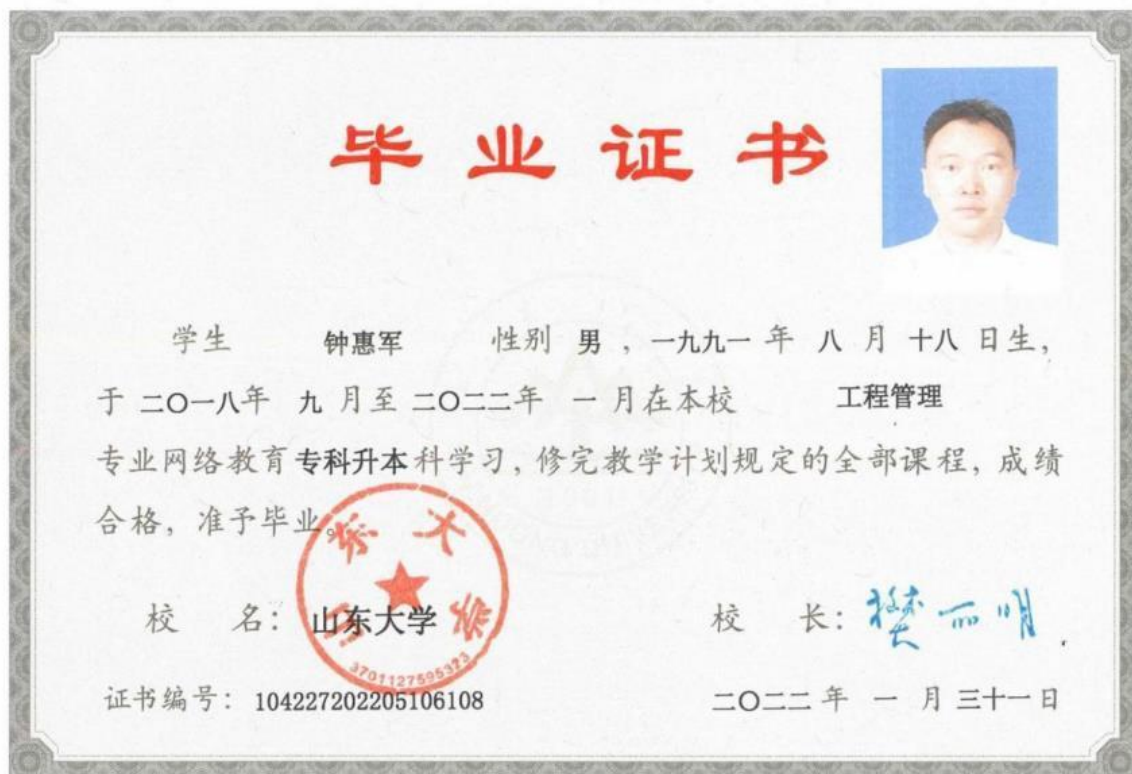 毕业证书
学生 钟惠军 性别 男 ，一九九一 年 八 月 十八 日生，
于 二〇一八年 九 月至 二〇二二年 一 月在本校 工程管理
专业网络教育 专科升本科学习，修完教学计划规定的全部课程，成绩
合格，准予毕业。
山东大学
3701127595323
校 名： 山东大学
校 长： 樊丽明
证书编号： 104227202205106108
二〇二二 年 一 月 三十一日